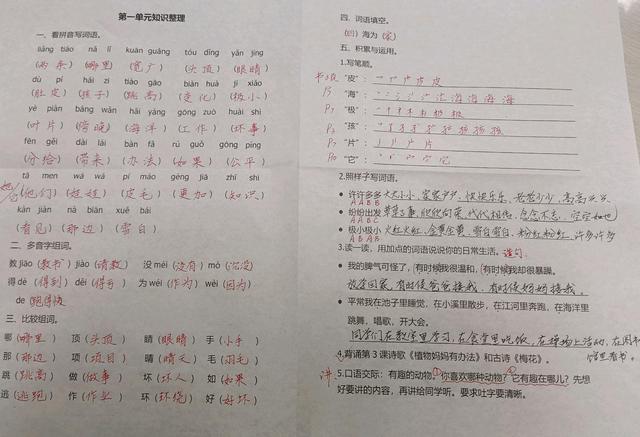 第一单元知识整理
一、看拼音写词语。
liǎng tiáo nǎ lǐ kuān guǎng tóu dǐng yǎn jing
(两条) (哪里) (宽广) (头顶) (眼睛)
dù pí hái zi tiào gāo biàn huà jí xiǎo
(肚皮) (孩子) (跳高) (变化) (极小)
yè piàn bàng wǎn hǎi yáng gōng zuò huài shì
(叶片) (傍晚) (海洋) (工作) (坏事)
fēn gěi dài lái bàn fǎ rú guǒ gōng píng
(分给) (带来) (办法) (如果) (公平)
tā men wá wá pí máo gèng jiā zhī shi
(他们) (娃娃) (皮毛) (更加) (知识)
kàn jiàn nà biān xuě bái
(看见) (那边) (雪白)
二、多音字组词。
教 jiāo (教书) jiào (请教) 没 méi (没有) mò (沉没)
得 dé (得到) děi (得亏) 为 wéi (作为) wèi (因为)
de (跑得快)
三、比较组词。
哪 (哪里) 顶 (头顶) 睛 (眼睛) 手 (小手)
那 (那边) 项 (项目) 晴 (晴天) 毛 (羽毛)
跳 (跳高) 做 (做事) 坏 (坏人) 如 (如果)
逃 (逃跑) 作 (作业) 环 (环绕) 好 (好坏)
四、词语填空。
(四) 海为 (家)
五、积累与运用。
1.写笔顺。
"皮":
"海":
"极":
"孩":
"片":
"它":
2.照样子写词语。
许许多多 大大小小、家家户户、快快乐乐、老老少少、高高兴兴
AABB
纷纷出发 草草了事、欣欣向荣、代代相传、念念不忘、空空如也
AABC
极小极小 火红火红、金黄金黄、雪白雪白、粉红粉红、许多许多
ABAB
3.读一读,用加点的词语说说你的日常生活。 造句
我的脾气可怪了,有时候我很温和,有时候我却很暴躁。
放学回家,有时候爸爸接我,有时候妈妈接我。
平常我在池子里睡觉,在小溪里散步,在江河里奔跑,在海洋里
跳舞,唱歌,开大会。
同学们在教室里学习,在食堂里吃饭,在操场上活动,在图书
馆里看书。
4.背诵第3课诗歌《植物妈妈有办法》和古诗《梅花》。
讲 5.口语交际:有趣的动物。①你喜欢哪种动物?②它有趣在哪儿?先想
好要讲的内容,再讲给同学听。要求吐字要清晰。